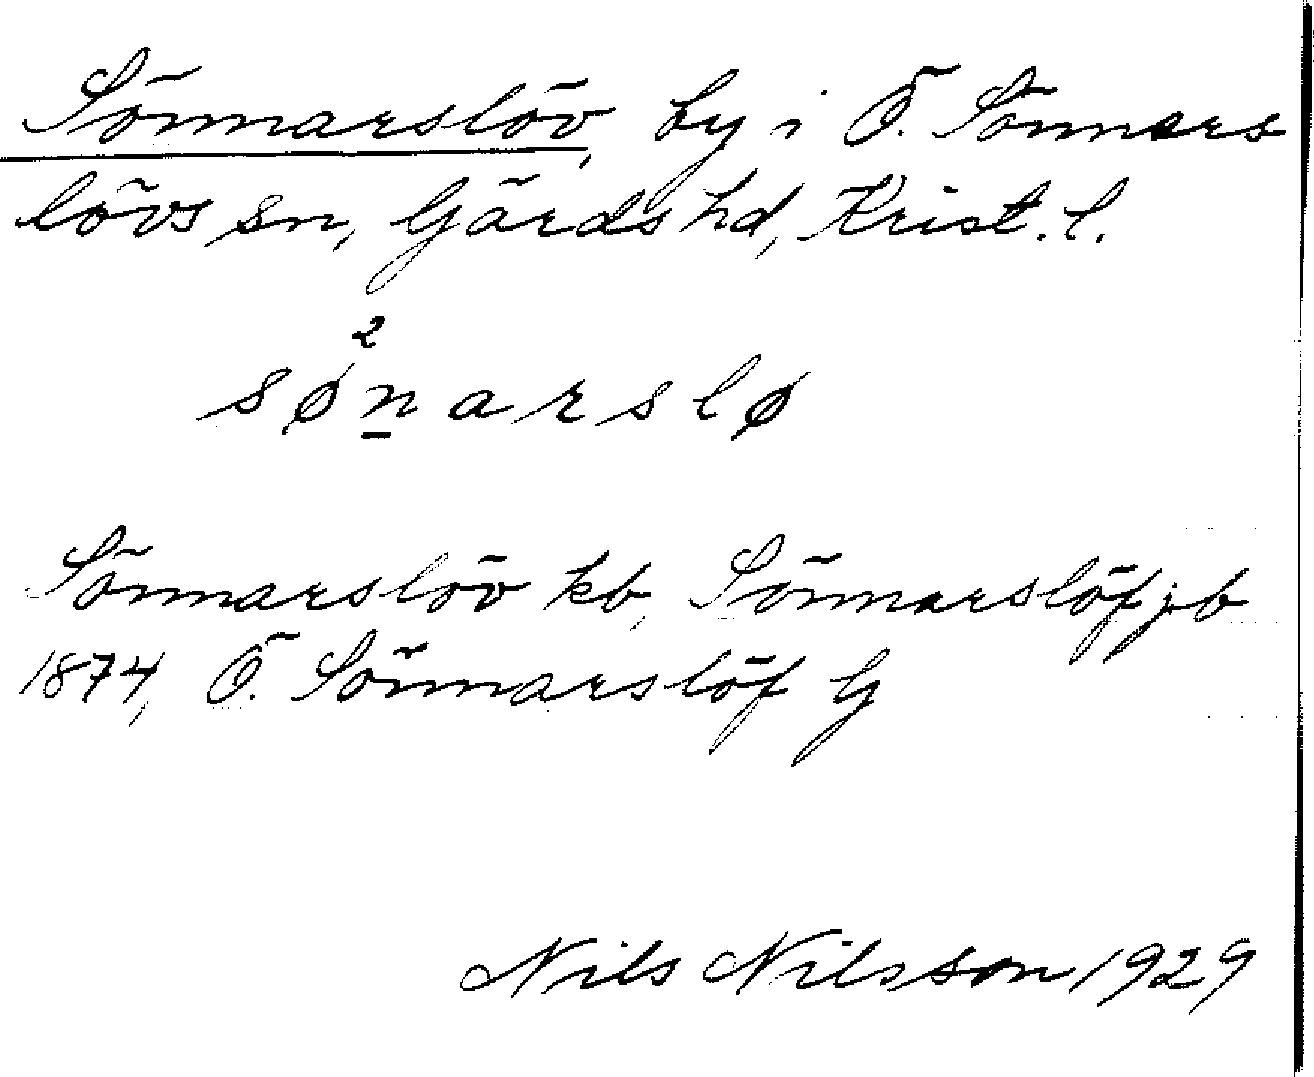 Sönnarslöv, by i Ö. Sönnars
lövs sn, Gärds hd, Krist. l.
2
sønarslø
Sönnarslöv kb, Sönnarslöf jb
1874, Ö. Sönnarslöf G
Nils Nilsson 1929